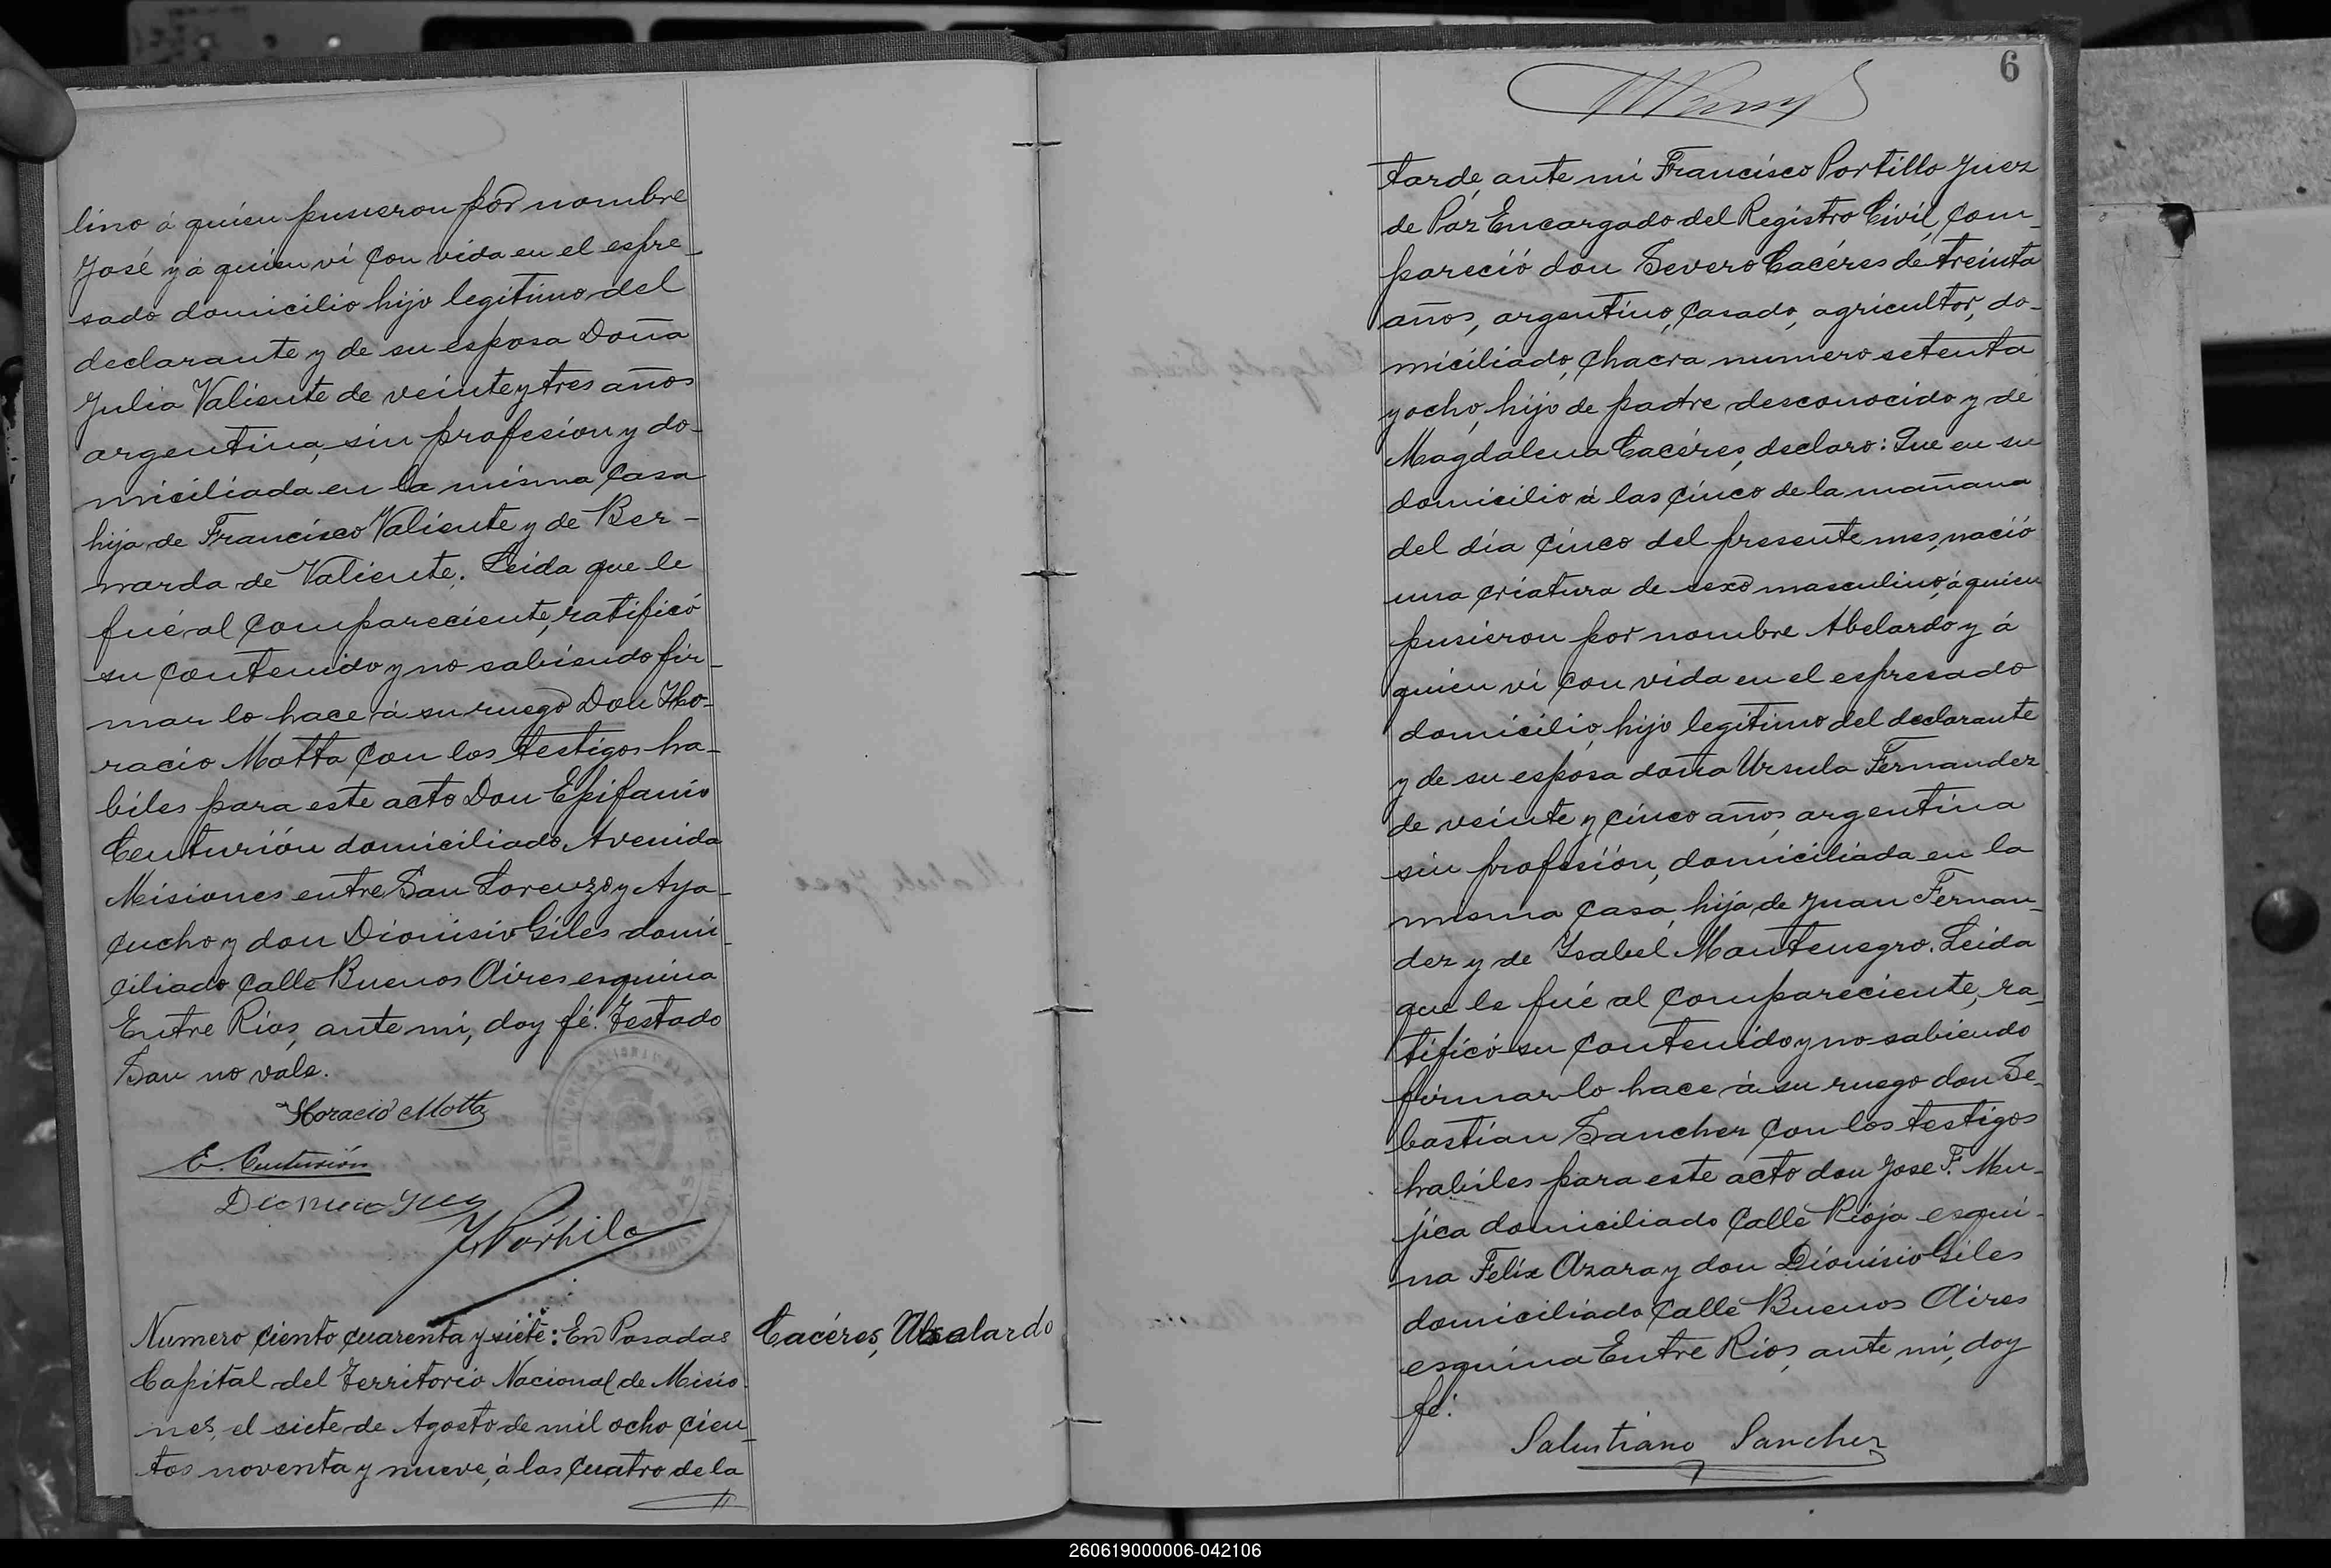 lino á quien pusieron por nombre
José y á quien ví con vida en el espre-
sado domicilio hijo legítimo del
declarante y de su esposa Doña
Julia Valiente de veinte y tres años
argentina, sin profesión y do-
miciliada en la misma casa
hija de Francisco Valiente y de Ber-
narda de Valiente. Leida que le
fué al compareciente, ratificó
su contenido y no sabiendo fir-
mar lo hace á su ruego Don Ho-
racio Motta con los testigos ha-
biles para este acto Don Epifanio
Centurión domiciliado Avenida
Misiones entre San Lorenzo y Aya-
cucho y don Dionisio Giles domi-
ciliado calle Buenos Aires esquina
Entre Rios, ante mi, doy fé. Testado
San no vale.
Horacio Motta
E. Centurión
Numero ciento cuarenta y siete: En Posadas
Capital del Territorio Nacional de Misio-
nes, el siete de Agosto de mil ocho cien-
tos noventa y nueve, á las cuatro de la
Cacéres, Abelardo
6
tarde, ante mi Francisco Portillo Juez
de Páz Encargado del Registro Civil, com-
pareció don Severo Cacéres de treinta
años, argentino, casado, agricultor, do-
miciliado, chacra numero setenta
y ocho, hijo de padre desconocido y de
Magdalena Cacéres, declaro: Que en su
domicilio á las cinco de la mañana
del día cinco del presente mes, nació
una criatura de sexo masculino, á quien
pusieron por nombre Abelardo y á
quien ví con vida en el espresado
domicilio, hijo legitimo del declarante
y de su esposa doña Ursula Fernandez
de veinte y cinco años, argentina
sin profesión, domiciliada en la
misma casa, hija de Juan Fernan-
dez y de Ysabel Montenegro. Leida
que le fué al compareciente, ra-
tificó su contenido y no sabiendo
firmar lo hace á su ruego don Se-
bastian Sanchez con los testigos
habiles para este acto don Jose F. Mu-
jica domiciliado calle Rioja esqui-
na Felix Azara y don Dionisio Giles
domiciliado calle Buenos Aires
esquina Entre Rios, ante mi, doy
fé.
Salustiano Sanchez
260619000006-042106